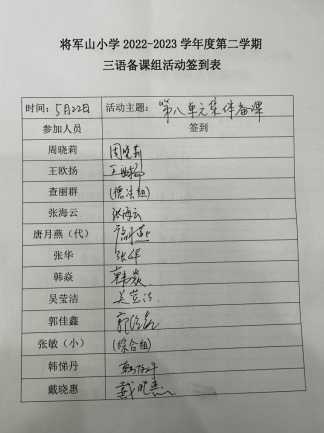 将军山小学 2022-2023 学年度第二学期
三语备课组活动签到表
时间：5月22日 活动主题：第八单元集体备课
参加人员 签到
周晓莉 周晓莉
王欧扬 王欧扬
查丽群 (德法组)
张海云 张海云
唐月燕（代） 唐月燕
张华 张华
韩焱 韩焱
吴莹洁 吴莹洁
郭佳鑫 郭佳鑫
张敏（小） (综合组)
韩悌丹 韩悌丹
戴晓惠 戴晓惠